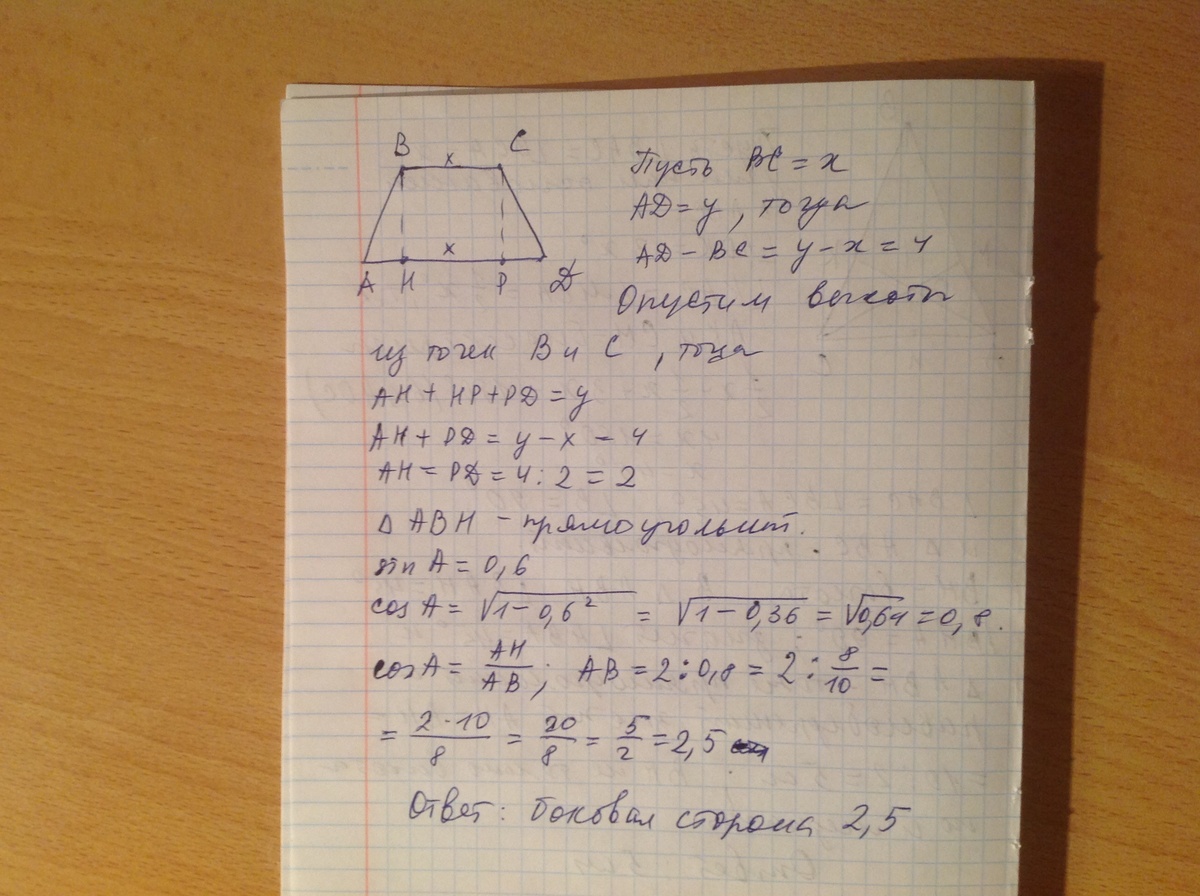 B x C
x
A H P D
Пусть BC = x
AD = y, тогда
AD - BC = y - x = 4
Опустим высоты
из точек B и C, тогда
AH + HP + PD = y
AH + PD = y - x - 4
AH = PD = 4 : 2 = 2
Δ ABH - прямоугольнит.
sin A = 0,6
cos A = √(1 - 0,6²) = √(1 - 0,36) = √0,64 = 0,8.
cos A = AH/AB; AB = 2 : 0,8 = 2 : 8/10 =
= 2·10/8 = 20/8 = 5/2 = 2,5
Ответ: боковая сторона 2,5